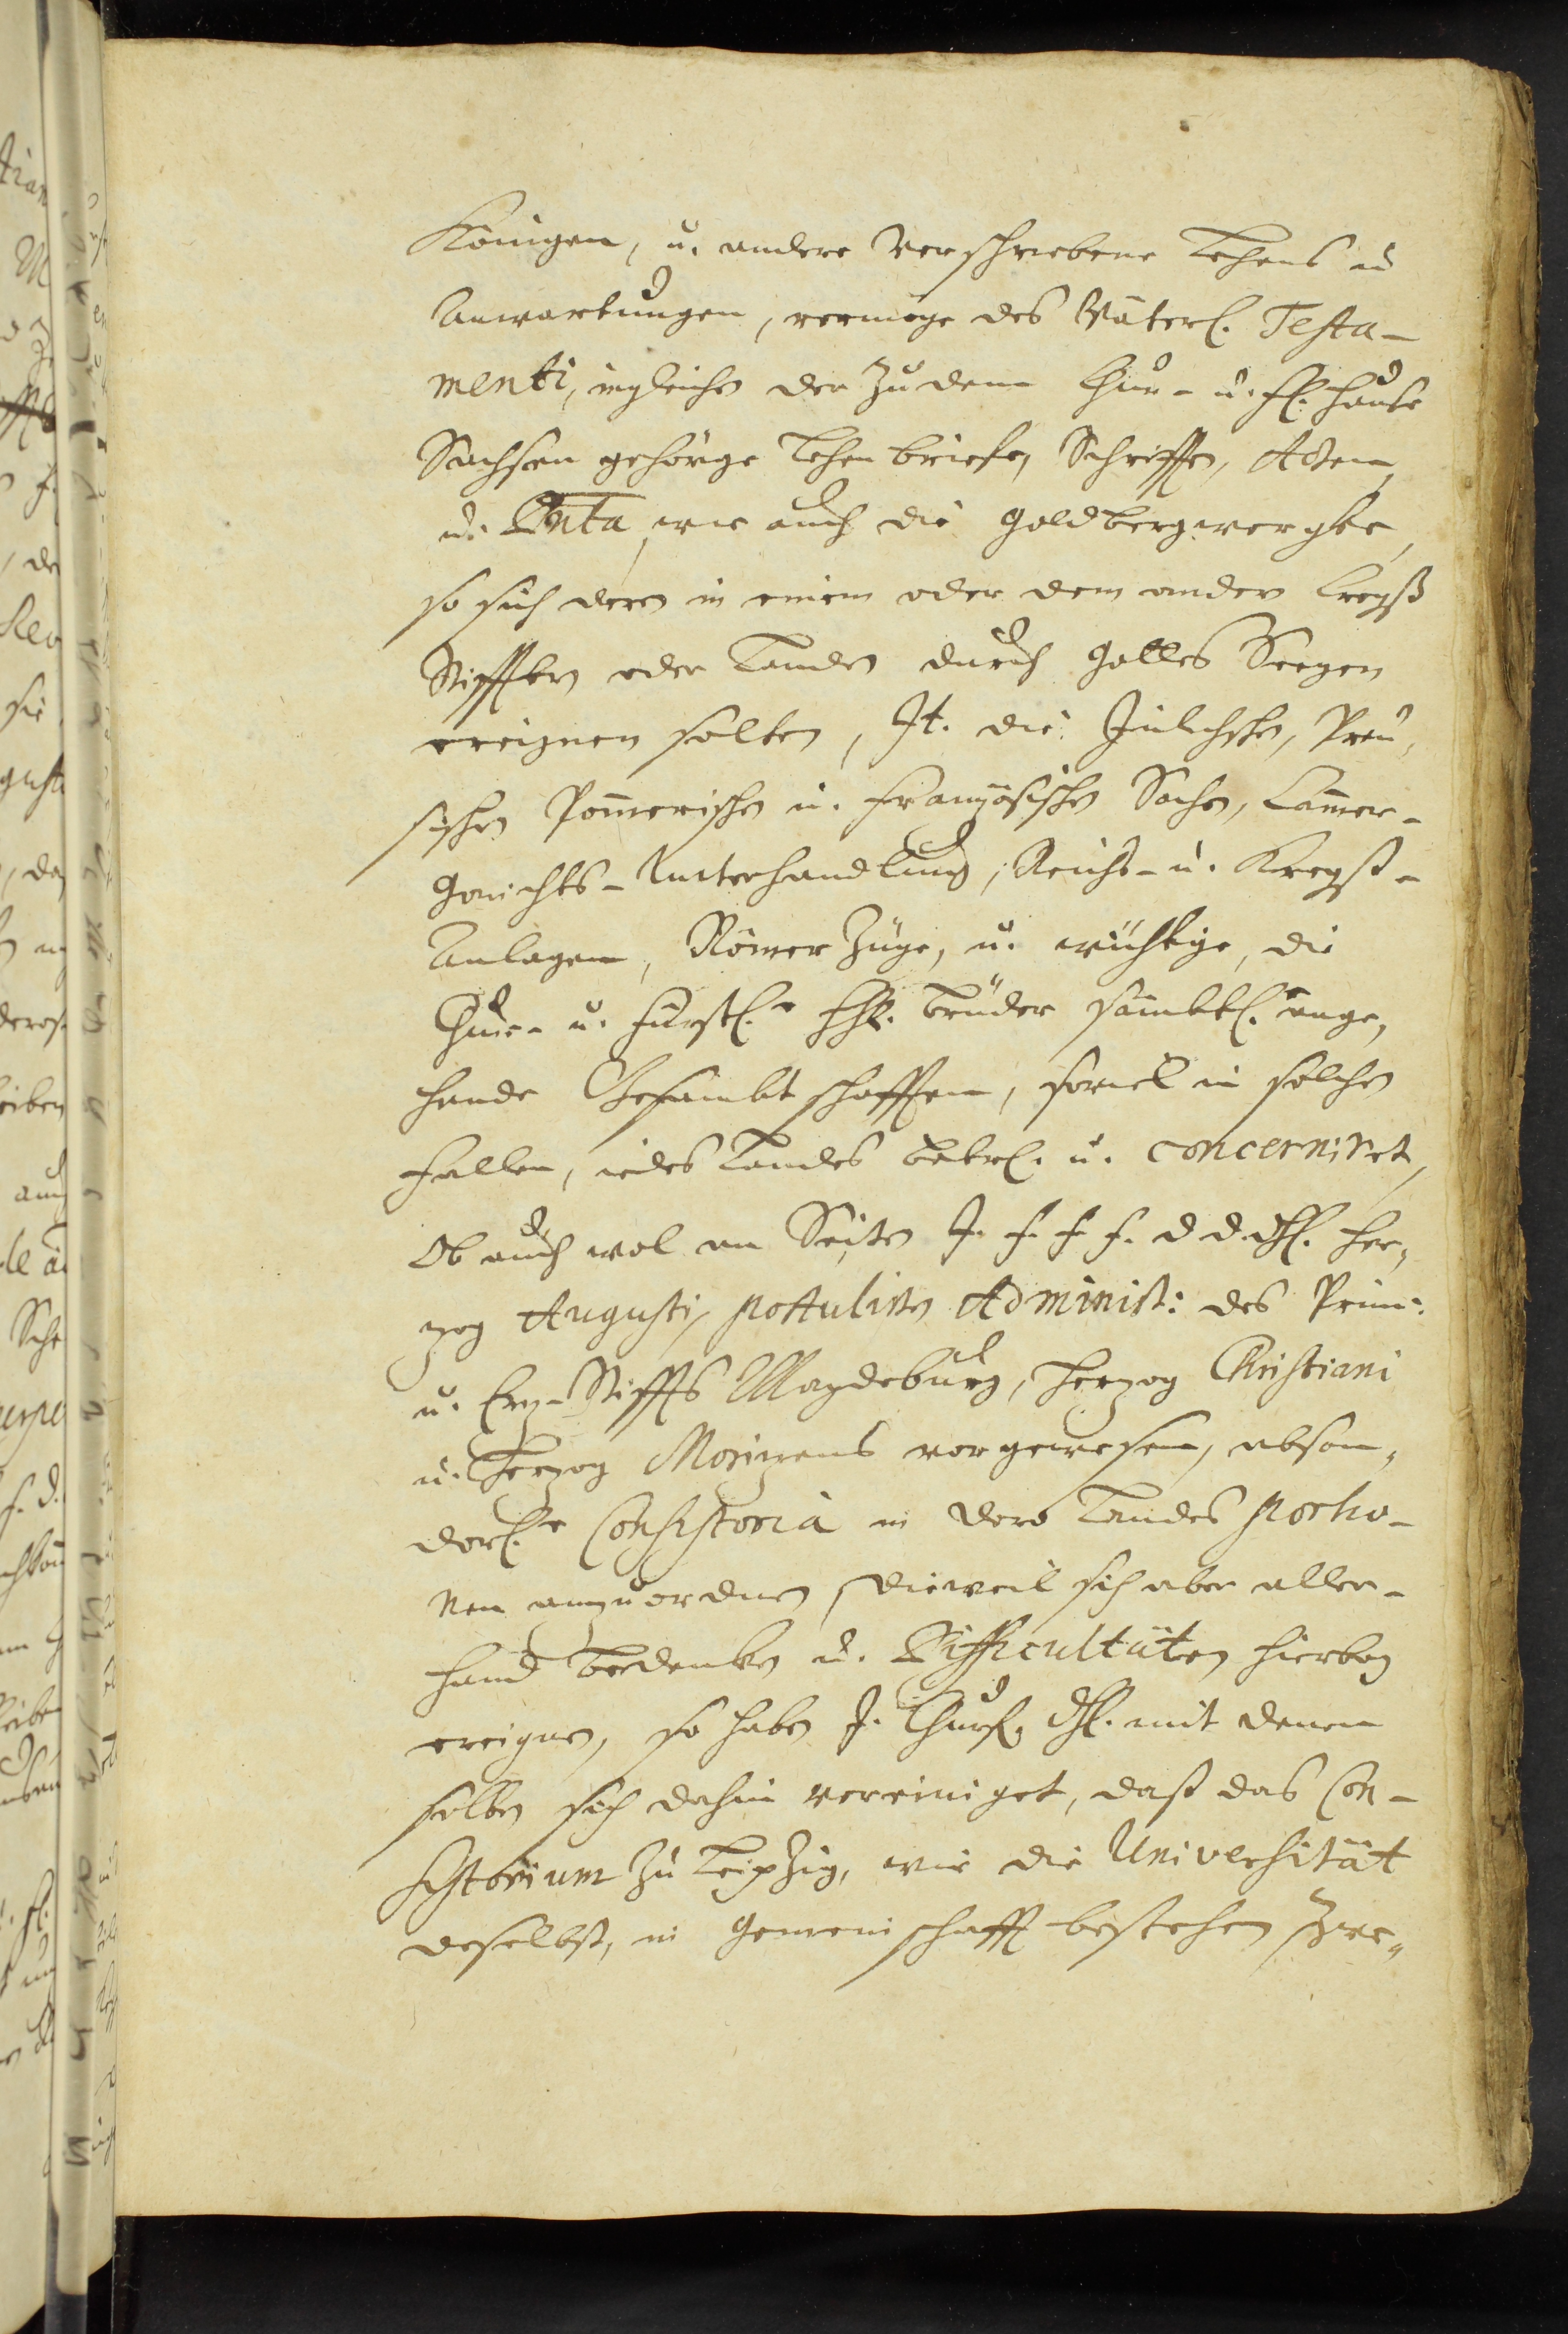 Königen, u. andere verschriebene Lehens u
Anwartungen, vermöge des Väterl. Testa-
menti, ingleichen der zu dem Chur- u. fl. Hauße
Sachsen gehörge Lehenbriefe, Schrifften, Acten,
u. Docũta, wie auch die Goldbergwergke,
so sich deren in einem oder dem andern Creyß
Stifftern oder Landen durch Gottes Seegen
ereignen solten, It. die Jülichschen, Preu,
sischen Pom̄erischen u. Französischen Sachen, Cam̄er-
Gerichts-Unterhandlung, Reichs- u. Kreyß-
Anlagen, Römer Züge, u. wichtige, die
Chur- u. Fürstl.e HH. Brüder sämbtl. ange,
hende Gesambtschafften, soviel in solchen
Fällen, iedes Landes betrl. u. concerniret,
Ob auch wol an Seiten J. F. F. F. D. D. Dhl. Her,
zog Augusti, postulirten Administ: des Prim:
u. Erz-Stiffts Magdeburg, Herzog Christiani
u. Herzog Morizens vorgewesen, abson,
derl.e Consistoria in dero Landes portio-
nen anzuordnen, dieweil sich aber aller-
hand Bedenken u. Difficultäten hierbey
ereignen, so haben J. Churf. Dhl. mit denen
selben sich dahin vereiniget, daß das Con-
sistorium zu Leipzig, wie die Universität
daselbst, in Gemeinschafft bestehen